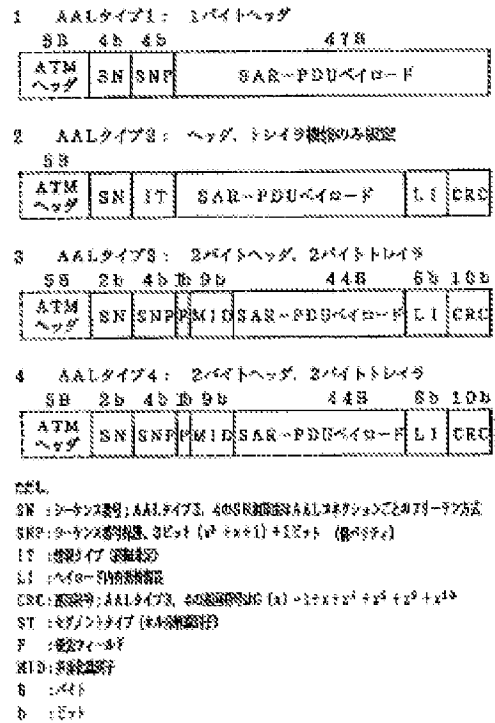 1 AALタイプ1: 1バイトヘッダ
5B 4b 4b 47B
ATMヘッダ SN SNP SAR-PDUペイロード
2 AALタイプ2: ヘッダ、トレイラ機能のみ規定
5B
ATMヘッダ SN IT SAR-PDUペイロード LI CRC
3 AALタイプ3: 2バイトヘッダ、2バイトトレイラ
5B 2b 4b 1b 9b 44B 6b 10b
ATMヘッダ SN SNP P MID SAR-PDUペイロード LI CRC
4 AALタイプ4: 2バイトヘッダ、2バイトトレイラ
5B 2b 4b 1b 9b 44B 6b 10b
ATMヘッダ SN SNP P MID SAR-PDUペイロード LI CRC
ただし、
SN :シーケンス番号;AALタイプ3、4のSN AALコネクションごとの
SNP:シーケンス番号 、3ビット (x³+x+1)+1ビット
IT :情報タイプ
LI :ペイロード
CRC: ;AALタイプ3、4の (x)=1+x+x⁴+x⁵+x⁹+x¹⁰
ST :セグメントタイプ
P : フィールド
MID:
B :バイト
b :ビット